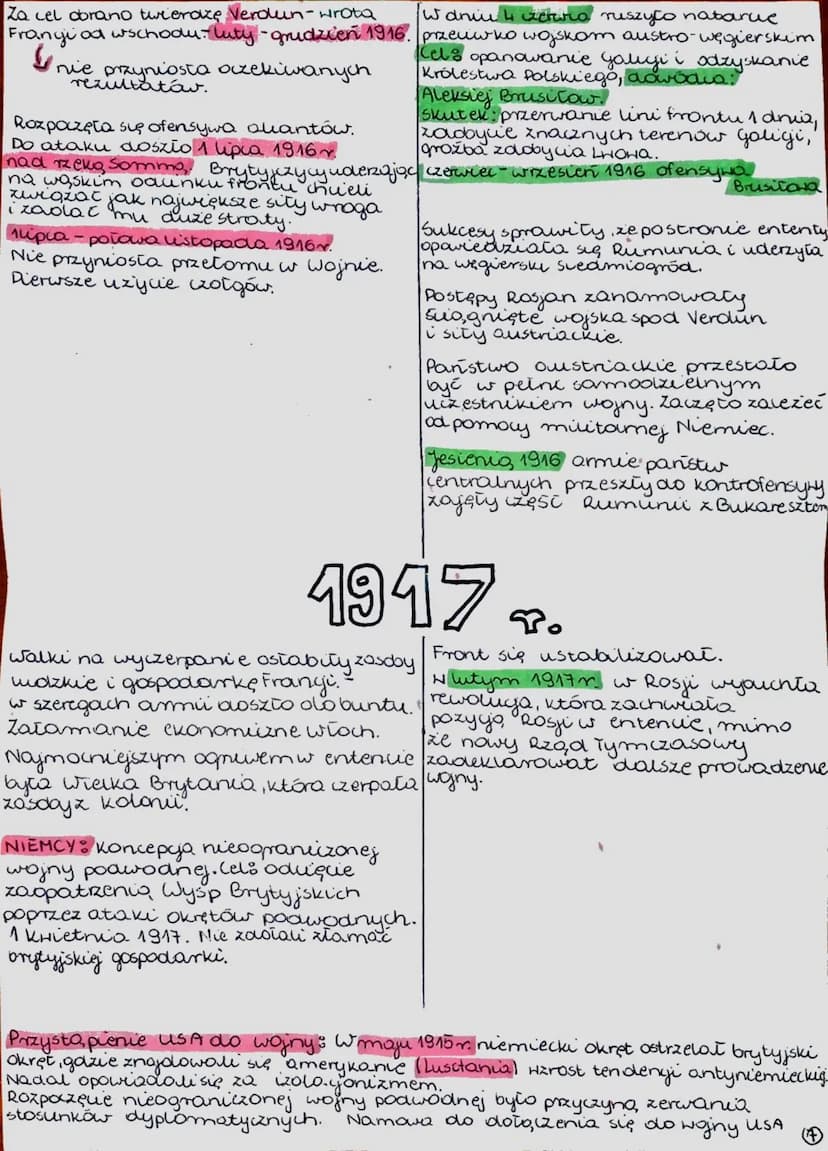 Za cel obrano twierdzę Verdun - wrota
Francji od wschodu - luty - grudzień 1916.
nie przyniosła oczekiwanych
rezultatów.
Rozpoczęła się ofensywa aliantów.
Do ataku doszło 1 lipca 1916r.
nad rzeką Sommą. Brytyjczycy uderzając
na wąskim odcinku frontu chcieli
związać jak największe siły wroga
i zadać mu duże straty.
1 lipca - połowa listopada 1916r.
Nie przyniosła przełomu w wojnie.
Pierwsze użycie czołgów.
W dniu 4 czerwca ruszyło natarcie
przeciwko wojskom austro-węgierskim
Cel: opanowanie Galicji i odzyskanie
Królestwa Polskiego, dowódca:
Aleksiej Brusiłow.
Skutek: przerwanie lini frontu 1 dnia,
zdobycie znacznych terenów Galicji,
groźba zdobycia Lwowa.
czerwiec - wrzesień 1916 ofensywa
Brusiłowa
Sukcesy sprawiły, że po stronie ententy
opowiedziała się Rumunia i uderzyła
na węgierski Siedmiogród.
Postępy Rosjan zahamowały
ściągnięte wojska spod Verdun
i siły austriackie.
Państwo austriackie przestało
być w pełni samodzielnym
uczestnikiem wojny. Zaczęło zależeć
od pomocy militarnej Niemiec.
Jesienią 1916 armie państw
centralnych przeszły do kontrofensywy
zajęły część Rumunii z Bukaresztem
1917 r.
Walki na wyczerpanie osłabiły zasoby
ludzkie i gospodarkę Francji. -
w szeregach armii doszło do buntu.
Załamanie ekonomiczne Włoch.
Najmocniejszym ogniwem w entencie
była Wielka Brytania, która czerpała
zasoby z kolonii.
NIEMCY: Koncepcja nieograniczonej
wojny podwodnej. Cel: odcięcie
zaopatrzenia Wysp Brytyjskich
poprzez ataki okrętów podwodnych.
1 kwietnia 1917. Nie zdołali złamać
brytyjskiej gospodarki.
Front się ustabilizował.
W lutym 1917r. w Rosji wybuchła
rewolucja, która zachwiała
pozycją Rosji w entencie, mimo
że nowy Rząd Tymczasowy
zadeklarował dalsze prowadzenie
wojny.
Przystąpienie USA do wojny: W maju 1915r. niemiecki okręt ostrzelał brytyjski
okręt, gdzie znajdowali się amerykanie (Lusitania) wzrost tendencji antyniemieckiej
Nadal opowiadali się za izolacjonizmem.
Rozpoczęcie nieograniczonej wojny podwodnej było przyczyną zerwania
stosunków dyplomatycznych. Namowa do dołączenia się do wojny USA